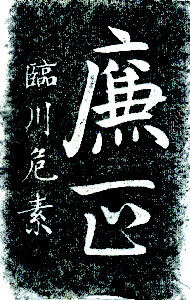 廉正
臨川危素